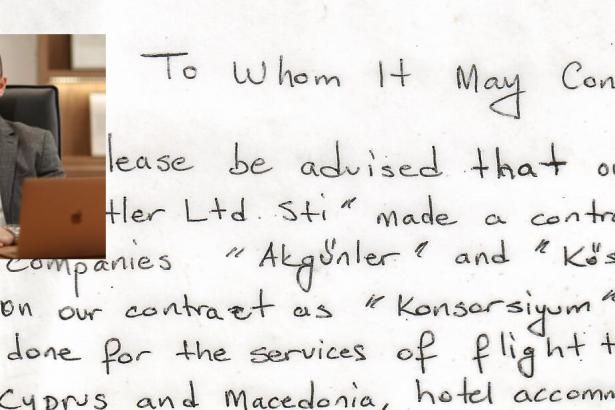 To Whom It May Con
lease be advised that o
tler Ltd. Sti" made a contra
companies "Akgünler" and "Kös
on our contract as "Konsorsiyum"
done for the services of flight t
Cyprus and Macedonia, hotel accomm